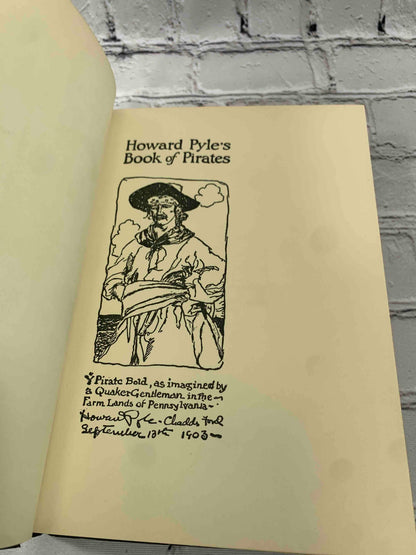 Howard Pyle's
Book of Pirates
Ye Pirate Bold, as imagined by
a Quaker Gentleman in the
Farm Lands of Pennsylvania -
Howard Pyle - Chadds Ford
September 13th 1903 -